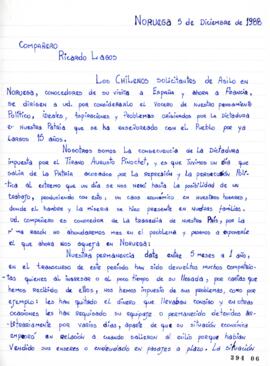 NORUEGA 5 de Diciembre de 1988
COMPAÑERO
RICARDO LAGOS
LOS CHILENOS SOLICITANTES DE ASILO EN
NORUEGA, CONOCEDORES DE SU VISITA A ESPAÑA Y AHORA A FRANCIA,
SE DIRIGEN A UD. POR CONSIDERARLO EL VOCERO DE NUESTRO PENSAMIENTO
POLÍTICO, IDEALES, ASPIRACIONES Y PROBLEMAS ORIGINADOS POR LA DICTADURA
EN NUESTRA PATRIA QUE SE HA ENSEÑOREADO CON EL PUEBLO POR YA
LARGOS 15 AÑOS.
NOSOTROS SOMOS LA CONSECUENCIA DE LA DICTADURA
IMPUESTA POR EL TIRANO AUGUSTO PINOCHET, Y ES QUE TUVIMOS UN DÍA QUE
SALIR DE LA PATRIA ACOSADOS POR LA REPRESIÓN Y LA PERSECUCIÓN POLÍ-
TICA AL EXTREMO QUE UN DÍA SE NOS NEGÓ HASTA LA POSIBILIDAD DE UN
TRABAJO, PRODUCIÉNDONOS CON ESTO, UN CAOS ECONÓMICO EN NUESTROS HOGARES,
DONDE EL HAMBRE Y LA MISERIA SE HIZO PRESENTE EN NUESTRAS FAMILIAS.
UD. COMPAÑERO ES CONOCEDOR DE LA TRAGEDIA DE NUESTRO PAÍS, POR LA
MISMA RAZÓN NO AHONDAREMOS MAS EN EL PROBLEMA Y PASAMOS A EXPONERLE
EL QUE AHORA NOS AQUEJA EN NORUEGA:
NUESTRA PERMANENCIA DATA ENTRE 5 MESES A 1 AÑO,
EN EL TRANSCURSO DE ESTE PERÍODO HAN SIDO DEVUELTOS MUCHOS COMPATRIO-
TAS QUIENES AL INGRESO O AL POCO TIEMPO DE SU LLEGADA; POR CARTAS QUE
HEMOS RECIBIDO DE ELLOS, NOS HEMOS IMPUESTO DE SUS PROBLEMAS, COMO POR
EJEMPLO: LES HAN QUITADO EL DINERO QUE LLEVABAN CONSIGO Y EN OTRAS
OCASIONES LES HAN REQUISADO SU EQUIPAJE O PERMANECIDO DETENIDOS AR-
BITRARIAMENTE POR VARIOS DÍAS, APARTE DE QUE SU SITUACIÓN ECONÓMICA
EMPEORÓ EN RELACIÓN A CUANDO SALIERON AL EXILIO PORQUE HABÍAN
VENDIDO SUS ENSERES O ENDEUDADO EN PASAJES A PLAZO. LA SITUACIÓN
394 06